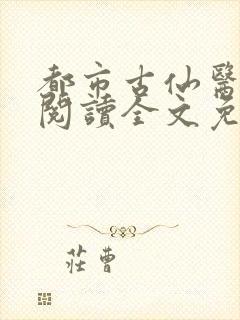 都市古仙醫
閱讀全文免
莊曹